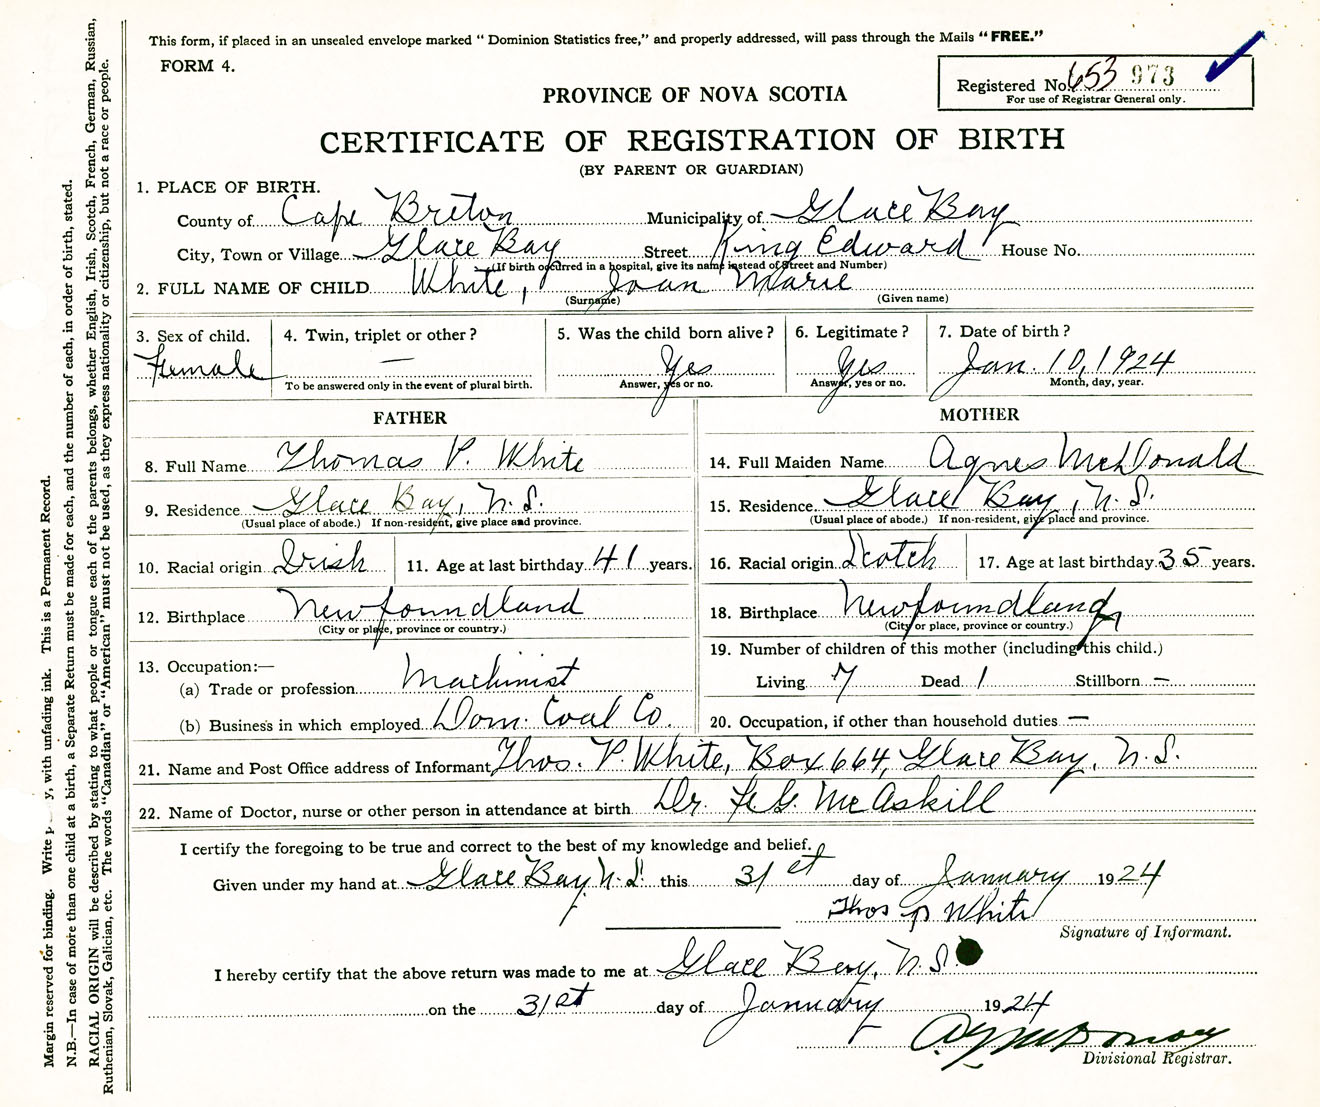 This form, if placed in an unsealed envelope marked " Dominion Statistics free," and properly addressed, will pass through the Mails "FREE."
FORM 4.
Registered No. 653 973
For use of Registrar General only.
PROVINCE OF NOVA SCOTIA
CERTIFICATE OF REGISTRATION OF BIRTH
(BY PARENT OR GUARDIAN)
1. PLACE OF BIRTH.
County of Cape Breton Municipality of Glace Bay
City, Town or Village Glace Bay Street King Edward House No.
(If birth occurred in a hospital, give its name instead of Street and Number)
2. FULL NAME OF CHILD White, Joan Marie
(Surname) (Given name)
3. Sex of child. 4. Twin, triplet or other? 5. Was the child born alive? 6. Legitimate? 7. Date of birth?
Female — Yes Yes Jan. 10, 1924
To be answered only in the event of plural birth. Answer, yes or no. Answer, yes or no. Month, day, year.
FATHER MOTHER
8. Full Name Thomas P. White 14. Full Maiden Name Agnes McDonald
9. Residence Glace Bay, N.S. 15. Residence Glace Bay, N.S.
(Usual place of abode.) If non-resident, give place and province. (Usual place of abode.) If non-resident, give place and province.
10. Racial origin Irish 11. Age at last birthday 41 years. 16. Racial origin Scotch 17. Age at last birthday 35 years.
12. Birthplace Newfoundland 18. Birthplace Newfoundland
(City or place, province or country.) (City or place, province or country.)
13. Occupation:— 19. Number of children of this mother (including this child.)
(a) Trade or profession Machinist Living 7 Dead 1 Stillborn —
(b) Business in which employed Dom. Coal Co. 20. Occupation, if other than household duties —
21. Name and Post Office address of Informant Thos. P. White, Box 664, Glace Bay, N.S.
22. Name of Doctor, nurse or other person in attendance at birth Dr. McAskill
I certify the foregoing to be true and correct to the best of my knowledge and belief.
Given under my hand at Glace Bay, N.S. this 31st day of January 1924
Thos P White
Signature of Informant.
I hereby certify that the above return was made to me at Glace Bay, N.S.
on the 31st day of January 1924
Divisional Registrar.
Margin reserved for binding. Write y, with unfading ink. This is a Permanent Record.
N.B.—In case of more than one child at a birth, a Separate Return must be made for each, and the number of each, in order of birth, stated.
RACIAL ORIGIN will be described by stating to what people or tongue each of the parents belongs, whether English, Irish, Scotch, French, German, Russian,
Ruthenian, Slovak, Galician, etc. The words "Canadian" or "American" must not be used, as they express nationality or citizenship, but not a race or people.